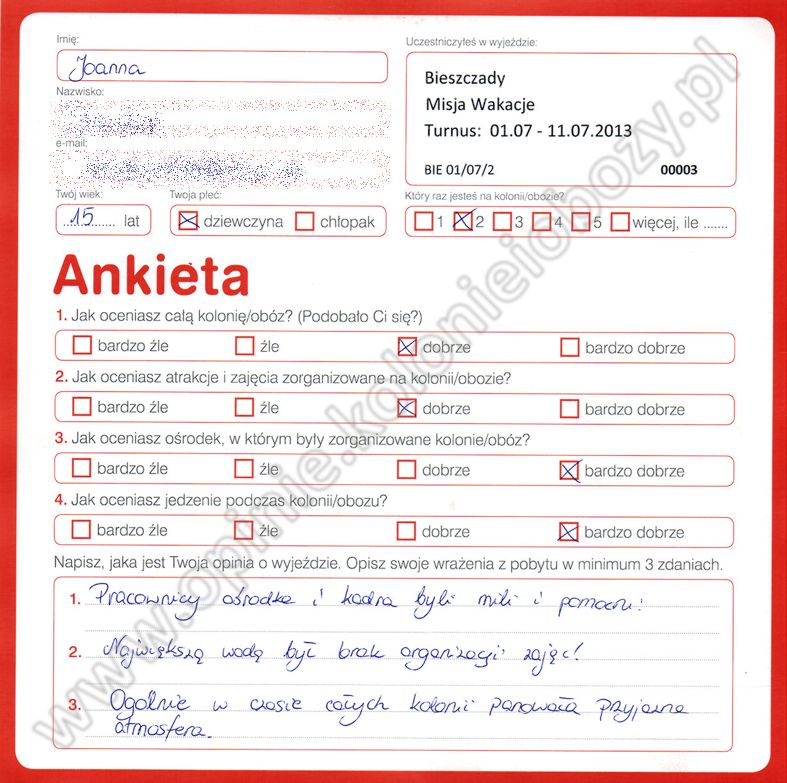 Imię:
Joanna
Nazwisko:
e-mail:
Twój wiek:
15 lat
Twoja płeć:
dziewczyna chłopak
Uczestniczyłeś w wyjeździe:
Bieszczady
Misja Wakacje
Turnus: 01.07 - 11.07.2013
BIE 01/07/2 00003
Który raz jesteś na kolonii/obozie?
1 2 3 4 5 więcej, ile .......
Ankieta
1. Jak oceniasz całą kolonię/obóz? (Podobało Ci się?)
bardzo źle źle dobrze bardzo dobrze
2. Jak oceniasz atrakcje i zajęcia zorganizowane na kolonii/obozie?
bardzo źle źle dobrze bardzo dobrze
3. Jak oceniasz ośrodek, w którym były zorganizowane kolonie/obóz?
bardzo źle źle dobrze bardzo dobrze
4. Jak oceniasz jedzenie podczas kolonii/obozu?
bardzo źle źle dobrze bardzo dobrze
Napisz, jaka jest Twoja opinia o wyjeździe. Opisz swoje wrażenia z pobytu w minimum 3 zdaniach.
1. Pracownicy ośrodka i kadra byli mili i pomocni!
2. Największą wadą był brak organizacji zajęć!
3. Ogólnie w czasie całych kolonii panowała przyjazna
atmosfera.
www.opinie.kolonieiobozy.pl